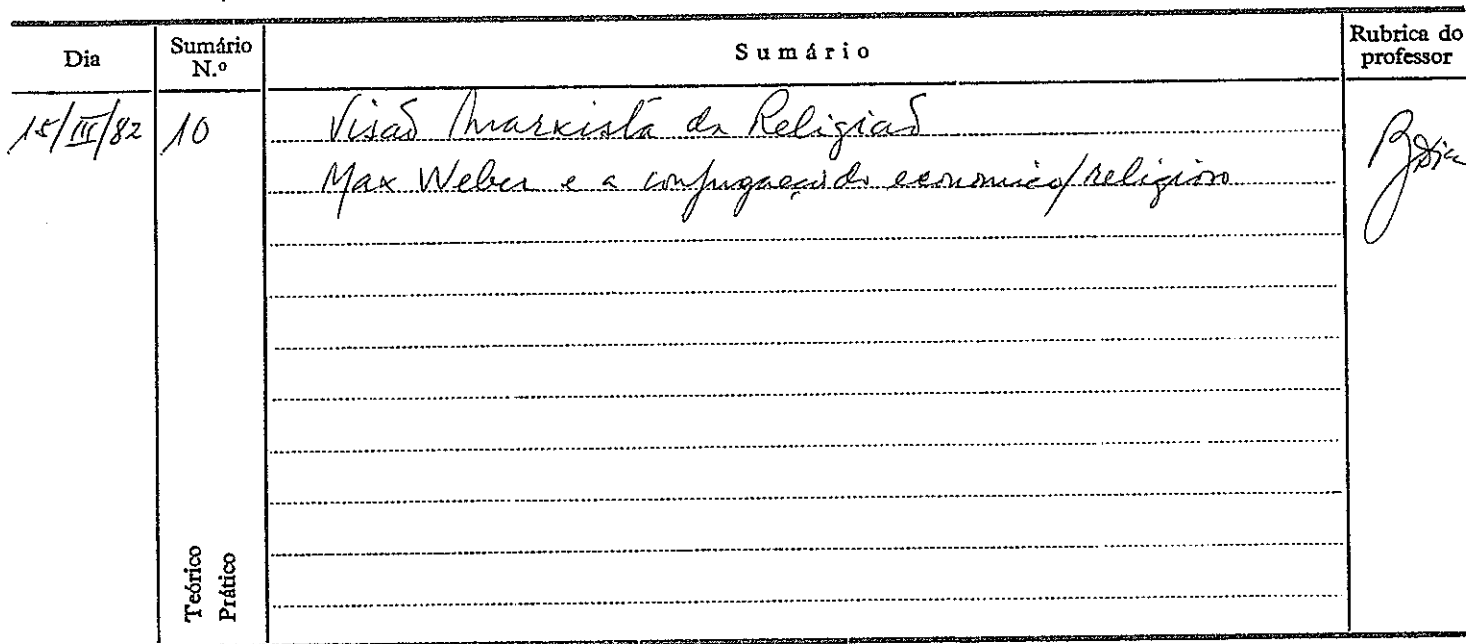 Dia
Sumário
N.º
Sumário
Rubrica do
professor
15/III/82
10
Visão Marxista da Religião
Max Weber e a conjugação do economico/religioso
Teórico
Prático